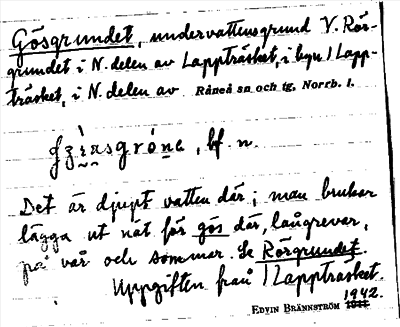 Gösgrundet, undervattensgrund V. Rör-
grundet i N. delen av Lappträsket, i byn Lapp-
träsket, i N. delen av Råneå sn och tg, Norrb. l.
bf. n.
Det är djupt vatten där; man brukar
lägga ut nät för gös där, långrevar,
på vår och sommar. Se Rörgrundet.
Uppgiften från Lappträsket.
EDVIN BRÄNNSTRÖM 1942.